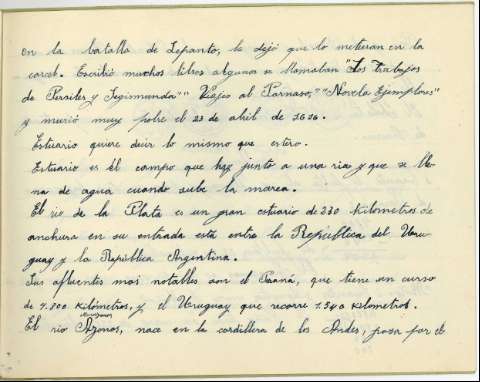 en la batalla de Lepanto, le dejó que lo metieran en la
carcel. Escribió muchos libros algunos se llamaban "Los Trabajos
de Persiles y Segismunda" "Viajes al Parnaso," "Novela Ejemplares"
y murió muy pobre el 23 de abril de 1616.
Estuario quiere decir lo mismo que estero.
Estuario es él campo que hay junto a una ria y que se lle-
na de agua cuando sube la marea.
El rio de la Plata es un gran estuario de 230 Kilometros de
anchura en su entrada esta entre la República del Uru-
guay y la República Argentina.
Sus afluentes mas notables son el Paraná, que tiene un curso
de 4.700 Kilómetros, y el Uruguay que recorre 1.540 Kilometros.
El rio nace en la cordillera de los Andes, pasa por el